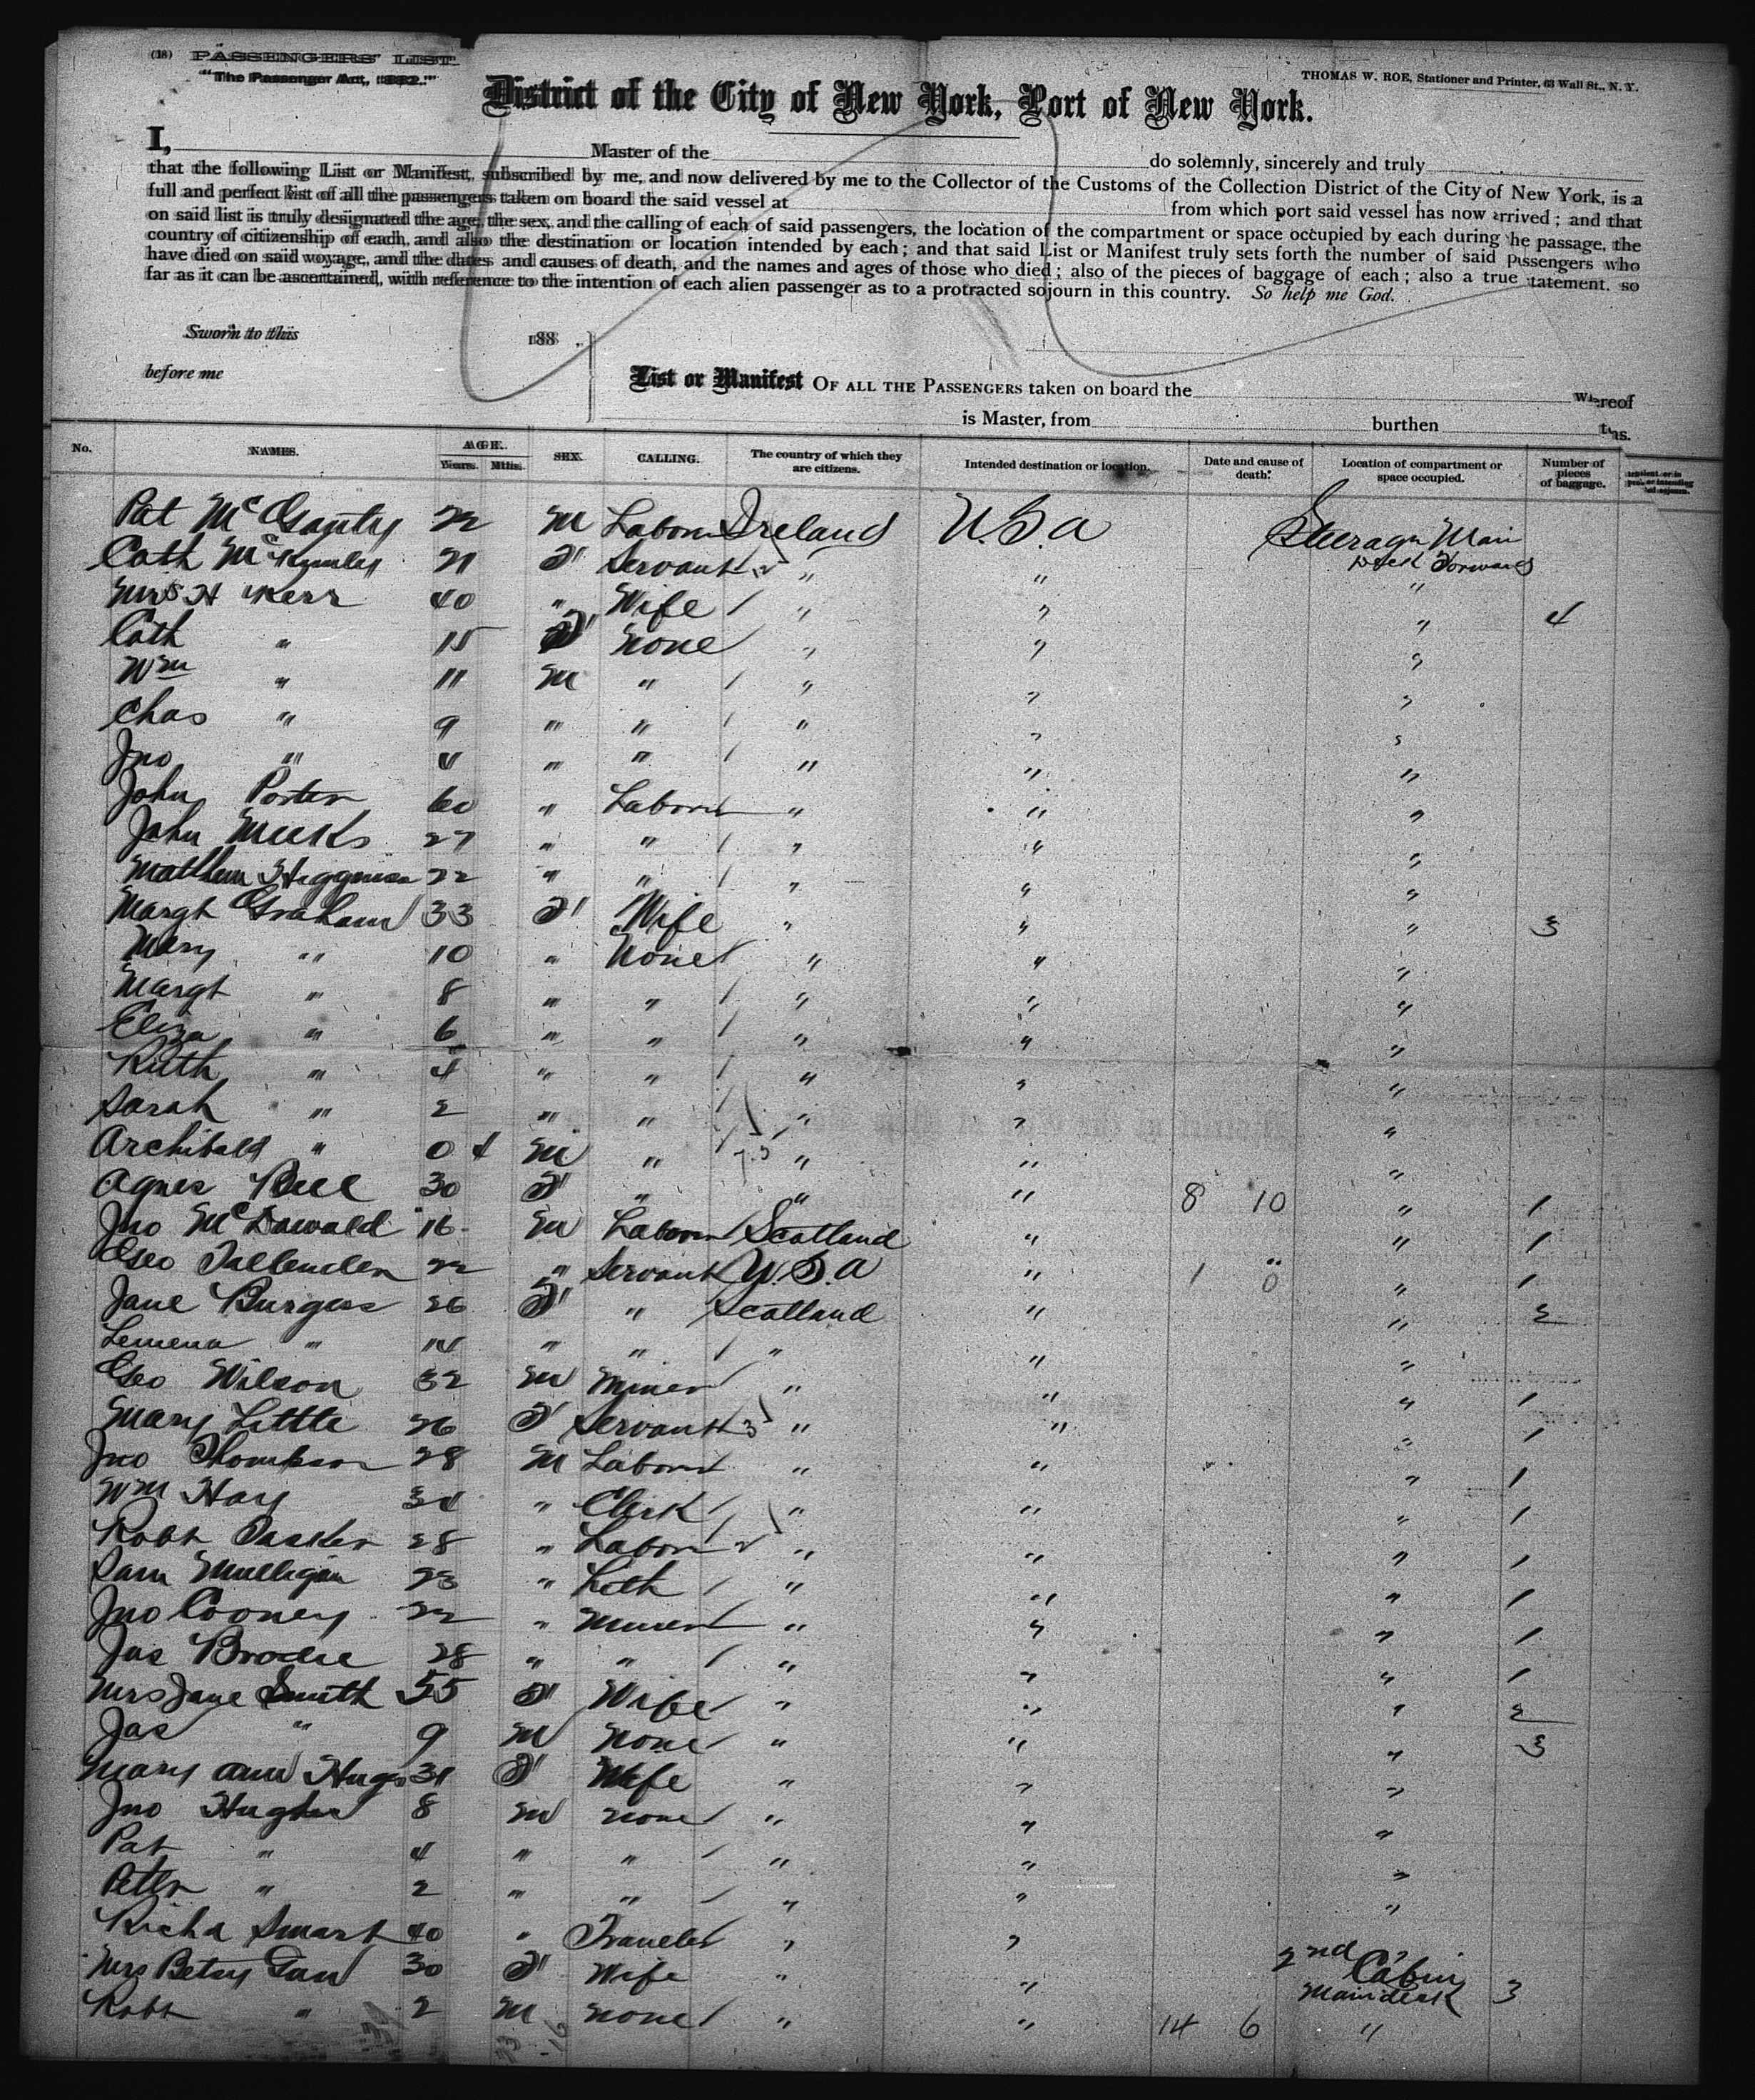 (18) PASSENGERS' LIST.
"The Passenger Act, 1882."
THOMAS W. ROE, Stationer and Printer, 63 Wall St., N. Y.
District of the City of New York, Port of New York.
I, Master of the do solemnly, sincerely and truly
that the following List or Manifest, subscribed by me, and now delivered by me to the Collector of the Customs of the Collection District of the City of New York, is a
full and perfect list of all the passengers taken on board the said vessel at from which port said vessel has now arrived; and that
on said list is truly designated the age, the sex, and the calling of each of said passengers, the location of the compartment or space occupied by each during the passage, the
country of citizenship of each, and also the destination or location intended by each; and that said List or Manifest truly sets forth the number of said passengers who
have died on said voyage, and the dates and causes of death, and the names and ages of those who died; also of the pieces of baggage of each; also a true statement, so
far as it can be ascertained, with reference to the intention of each alien passenger as to a protracted sojourn in this country. So help me God.
Sworn to this 188 .
before me
List or Manifest OF ALL THE PASSENGERS taken on board the Whereof
is Master, from burthen tons.
No. NAMES. AGE. Years. Mths. SEX. CALLING. The country of which they are citizens. Intended destination or location. Date and cause of death. Location of compartment or space occupied. Number of pieces of baggage.
Pat 22 M Labourer Ireland U.S.A Steerage Main
Cath 21 F Servant " " Deck Forward
Mrs H Kerr 40 " Wife " " " 4
Cath " 15 F None " " "
Wm " 11 M " " " "
Chas " 9 " " " " "
Jno " 4 " " " " "
John Porter 60 " Labourer " " "
John Meeks 27 " " " " "
Matthew 22 " " " " "
Margt Graham 33 F Wife " " " 3
Mary " 10 " None " " "
Margt " 8 " " " " "
Eliza " 6 " " " " "
Ruth " 4 " " " " "
Sarah " 2 " " " " "
Archibald " 0 4 M " " " "
Agnes Bell 30 F " " " 8 10 " 1
Jno 16 M Labourer Scotland " " 1
Geo 22 " Servant U.S.A " 1 0 " 1
Jane Burgess 26 F " Scotland " " 2
" 14 " " " " "
Geo Wilson 32 M Miner " " " 1
Mary Little 26 F Servant " " " 1
Jno Thompson 28 M Labourer " " " 1
Wm Hay 34 " Clerk " " " 1
Robt 28 " Labourer " " " 1
Sam Mulligan 23 " " " " 1
Jno Cooney 22 " Miner " " " 1
Jas Brodie 28 " " " " " 1
Mrs Jane Smith 55 F Wife " " " 2
Jas " 9 M None " " " 3
Mary Ann 31 F Wife " " "
Jno Hughes 8 M None " " "
Pat " 4 " " " " "
Peter " 2 " " " " "
Richd Smart 40 " Traveler " " "
Mrs Betsy 30 F Wife " " 2nd Cabin Main deck 3
Robt " 2 M None " " 14 6 "